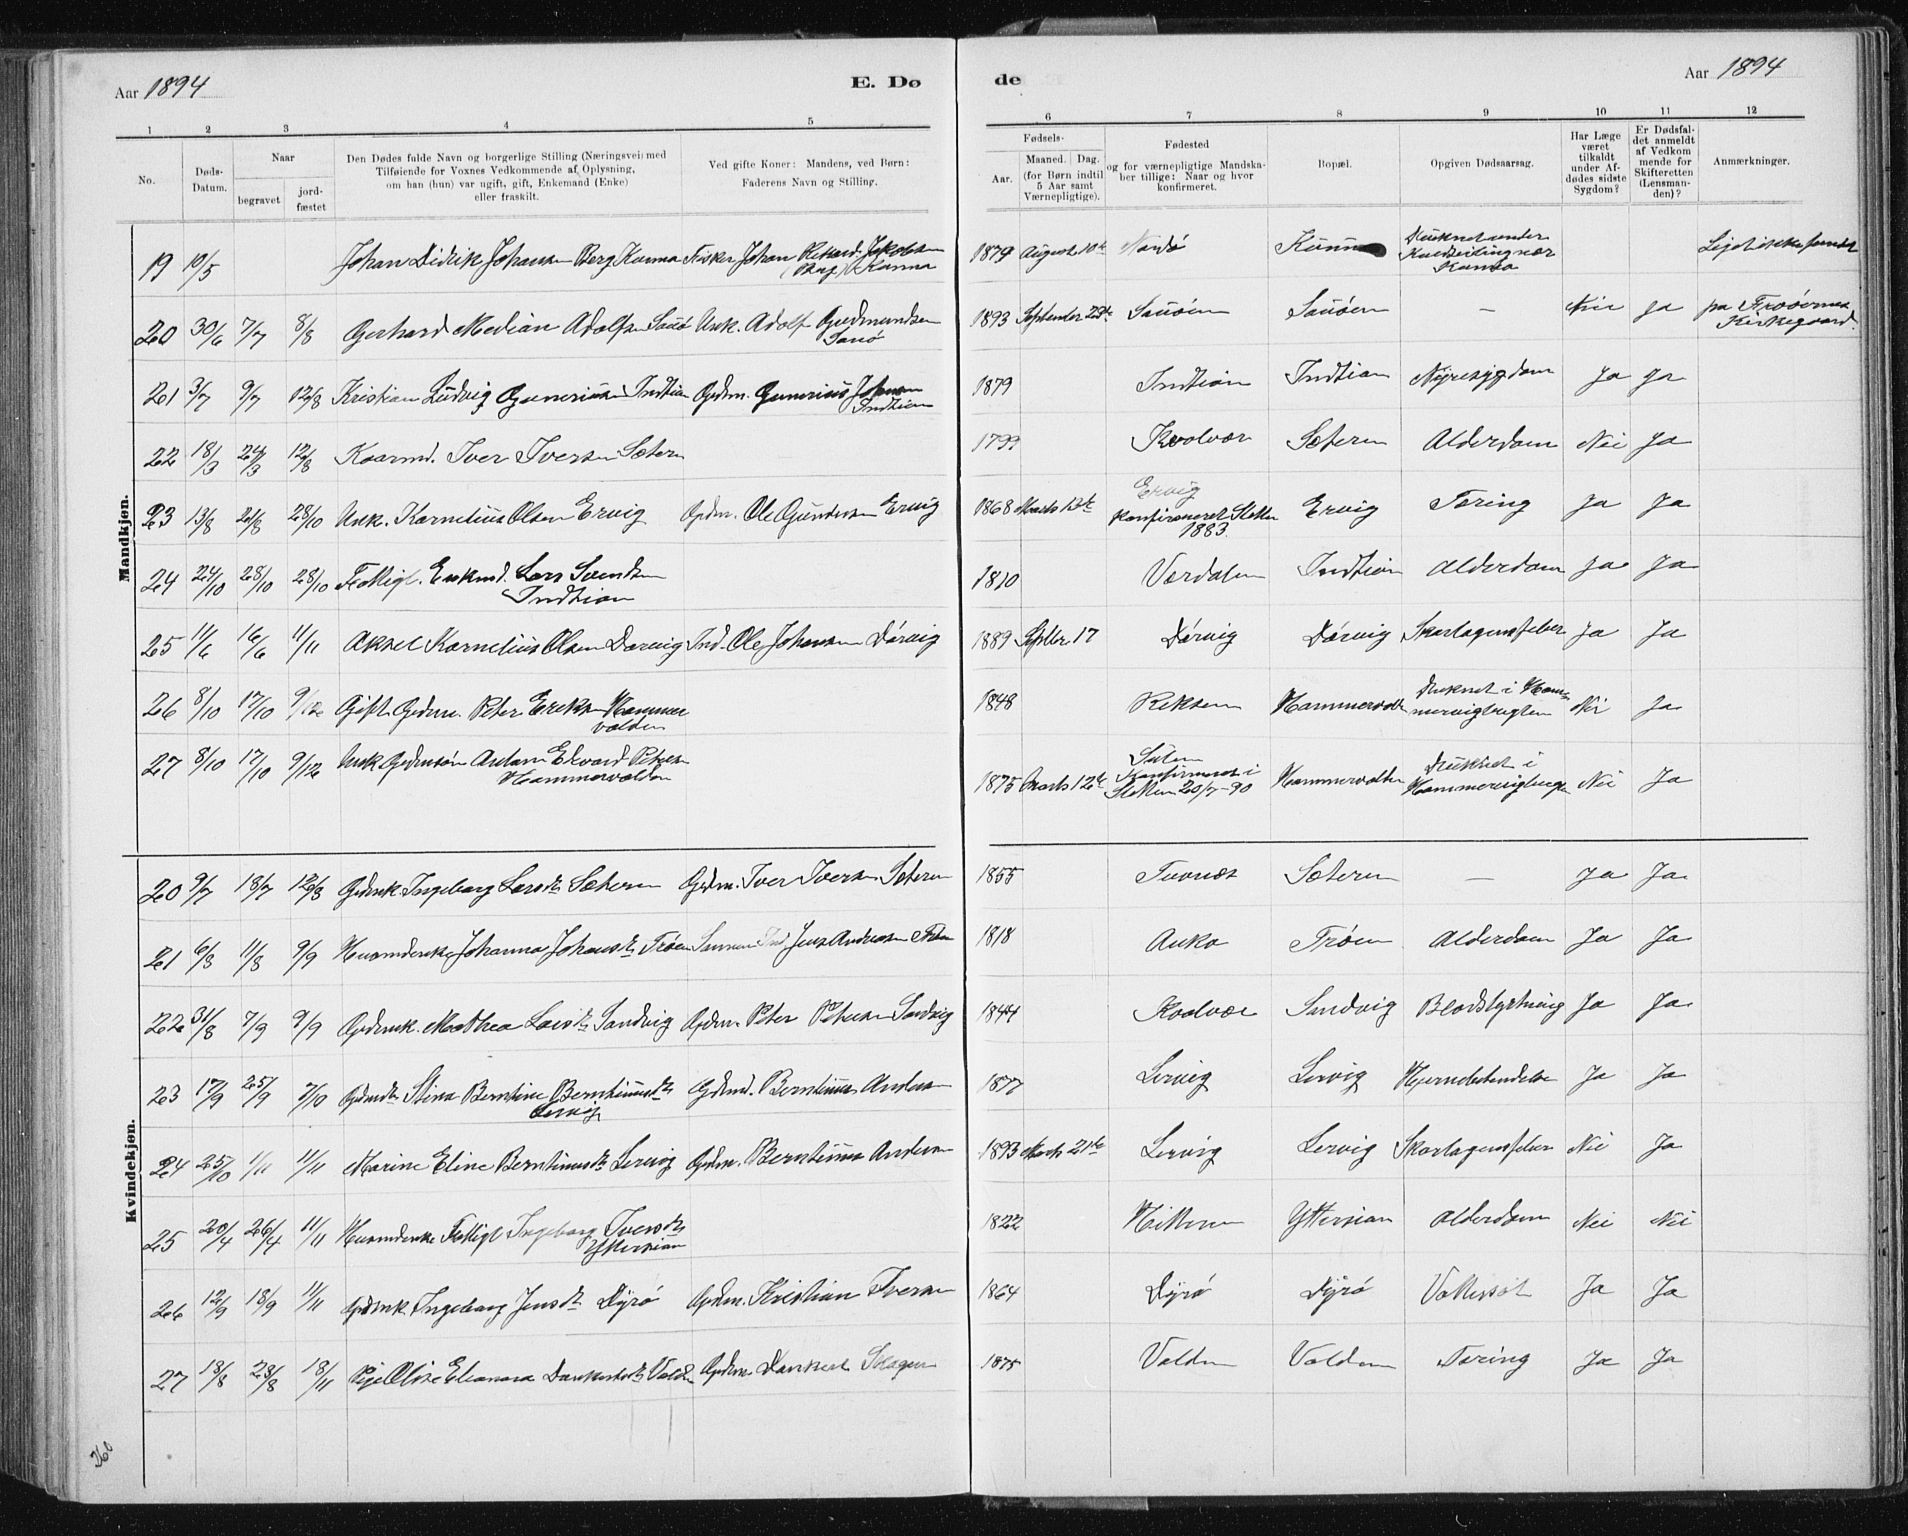 Aar 1894
E. Dø
de
Aar 1894
1 2 3 4 5 6 7 8 9 10 11 12
No.
Døds-
Datum.
Naar
begravet
jord-
fæstet
Den Dødes fulde Navn og borgerlige Stilling (Næringsvei) med
Tilføiende for Voxnes Vedkommende af Oplysning,
om han (hun) var ugift, gift, Enkemand (Enke)
eller fraskilt.
Ved gifte Koner: Mandens, ved Børn:
Faderens Navn og Stilling.
Fødsels-
Aar.
Maaned. Dag.
(for Børn indtil
5 Aar samt
Værnepligtige).
Fødested
og for værnepligtige Mandska-
ber tillige: Naar og hvor
konfirmeret.
Bopæl.
Opgiven Dødsaarsag.
Har Læge
været
tilkaldt
under Af-
dødes sidste
Sygdom?
Er Dødsfal-
det anmeldt
af Vedkom
mende for
Skifteretten
(Lensman-
den)?
Anmærkninger.
Mandkjøn.
19 10/5 Johan Didrik Johansen Berg Kunna Fisker Johan Rikard Jakobsen
(Berg) Kunna 1879 August 10de Kunna
20 30/6 7/7 8/8 Gerhard Median Adolfsen Sauø Unk. Adolf Gudmundsen
Sauø 1893 September 23de Sauøen Sauøen — Nei ja paa Froøernes
Kirkegaard.
21 3/7 9/7 12/8 Kristian Ludvig Guneriussen Indtian Gdm. Gunerius Johansen
Indtian 1879 Indtian Indtian Nyresygdom Ja ja
22 18/3 24/3 12/8 Kaarmd. Iver Iversen Sætern 1799 Kvalvær Sætern Alderdom Nei Ja
23 13/8 21/8 28/10 Unk. Kornelius Olsen Ervig Gdm. Ole Gundersen Ervig 1868 Marts 12te Ervig
konfirmeret Sletten
1883. Ervig Tæring Ja Ja
24 24/10 28/10 28/10 Fattigl. Enkmd. Lars Svendsen
Indtian 1810 Værdalen Indtian Alderdom Ja Ja
25 11/6 16/6 11/11 Aksel Kornelius Olsen Dørvig Ind. Ole Johansen Dørvig 1889 Septbr 17 Dørvig Dørvig Skarlagensfeber Ja Ja
26 8/10 17/10 9/12 Gift Gdm. Peter Eriksen Hammer
valden 1848 Reksen Hammervalden druknet i Ham-
mervigbugten Nei Ja
27 8/10 17/10 9/12 Unk Gdmsøn Anton Edvard Peters.
Hammervalden 1875 Marts 12te
Konfirmeret i
Sletten 20/7-90 Hammervalden Druknet i
Hammervigbugten Nei Ja
Kvindekjøn.
20 9/7 18/7 12/8 Gdmk. Ingeborg Larsdtr Sætern Gdm. Iver Iversen Sætern 1855 Tuvnæs Sætern — Ja Ja
21 6/8 11/8 9/9 Husmdenke Johanna Johansdtr Trøen Jens Andreasen 1818 Auka Trøen Alderdom Ja Ja
22 31/8 7/9 9/9 Gdmk. Mathea Larsdtr Sandvig Gdm. Peter Petersen Sandvig 1844 Kvalvær Sandvig Blodstyrtning Ja Ja
23 17/9 25/9 7/10 Gdmdtr Stina Berntine Berntinusdtr
Lervig Gdmd. Berntinus Andersen 1877 Lervig Lervig Hjernebetendelse Ja Ja
24 25/10 1/11 11/11 Marine Eline Berntinusdtr Lervig Gdm. Berntinus Andersen 1893 Marts 21de Lervig Lervig Skarlagensfeber Nei Ja
25 20/4 26/4 11/11 Husmdenke Fattigl Ingeborg Iversdtr
Yttersian 1822 Hitteren Yttersian Alderdom Nei Nei
26 12/9 18/9 11/11 Gdmk. Ingeborg Jensdtr Dyrø Gdm. Kristian Iversen 1864 Dyrø Dyrø Vattersot Ja Ja
27 18/8 23/8 18/11 Pige Oline Eleanora Dankertsdtr Valden Gdm. Dankert 1875 Valden Valden Tæring Ja Ja
260